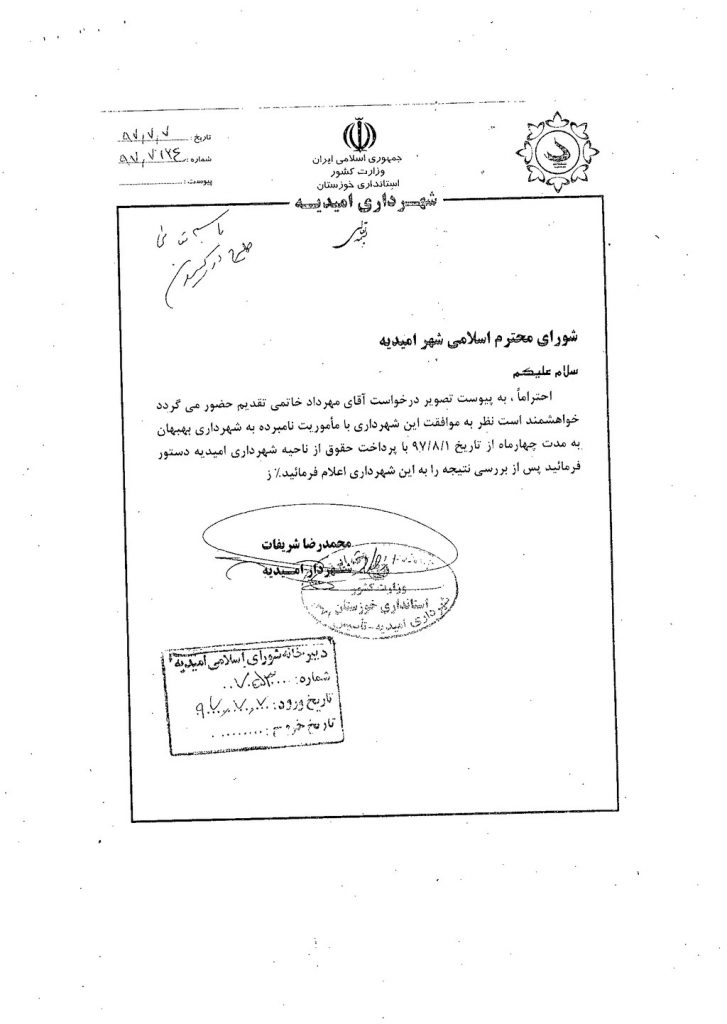 تاریخ : ۹۷٫۷٫۷
شماره : ۹۷٫۷۱۲۴
پیوست :
جمهوری اسلامی ایران
وزارت کشور
استانداری خوزستان
شهرداری امیدیه
بسمه تعالی
شورای محترم اسلامی شهر امیدیه
سلام علیکم
احتراماً ، به پیوست تصویر درخواست آقای مهرداد خاتمی تقدیم حضور می گردد
خواهشمند است نظر به موافقت این شهرداری با مأموریت نامبرده به شهرداری بهبهان
به مدت چهارماه از تاریخ ۹۷/۸/۱ با پرداخت حقوق از ناحیه شهرداری امیدیه دستور
فرمائید پس از بررسی نتیجه را به این شهرداری اعلام فرمائید.٪ ز
محمدرضا شریفات
شهردار امیدیه
وزارت کشور
استانداری خوزستان
شهرداری امیدیه - تأسیس
دبیرخانه شورای اسلامی امیدیه
شماره :
تاریخ ورود : ۹۷٫۷٫۷
تاریخ خروج :